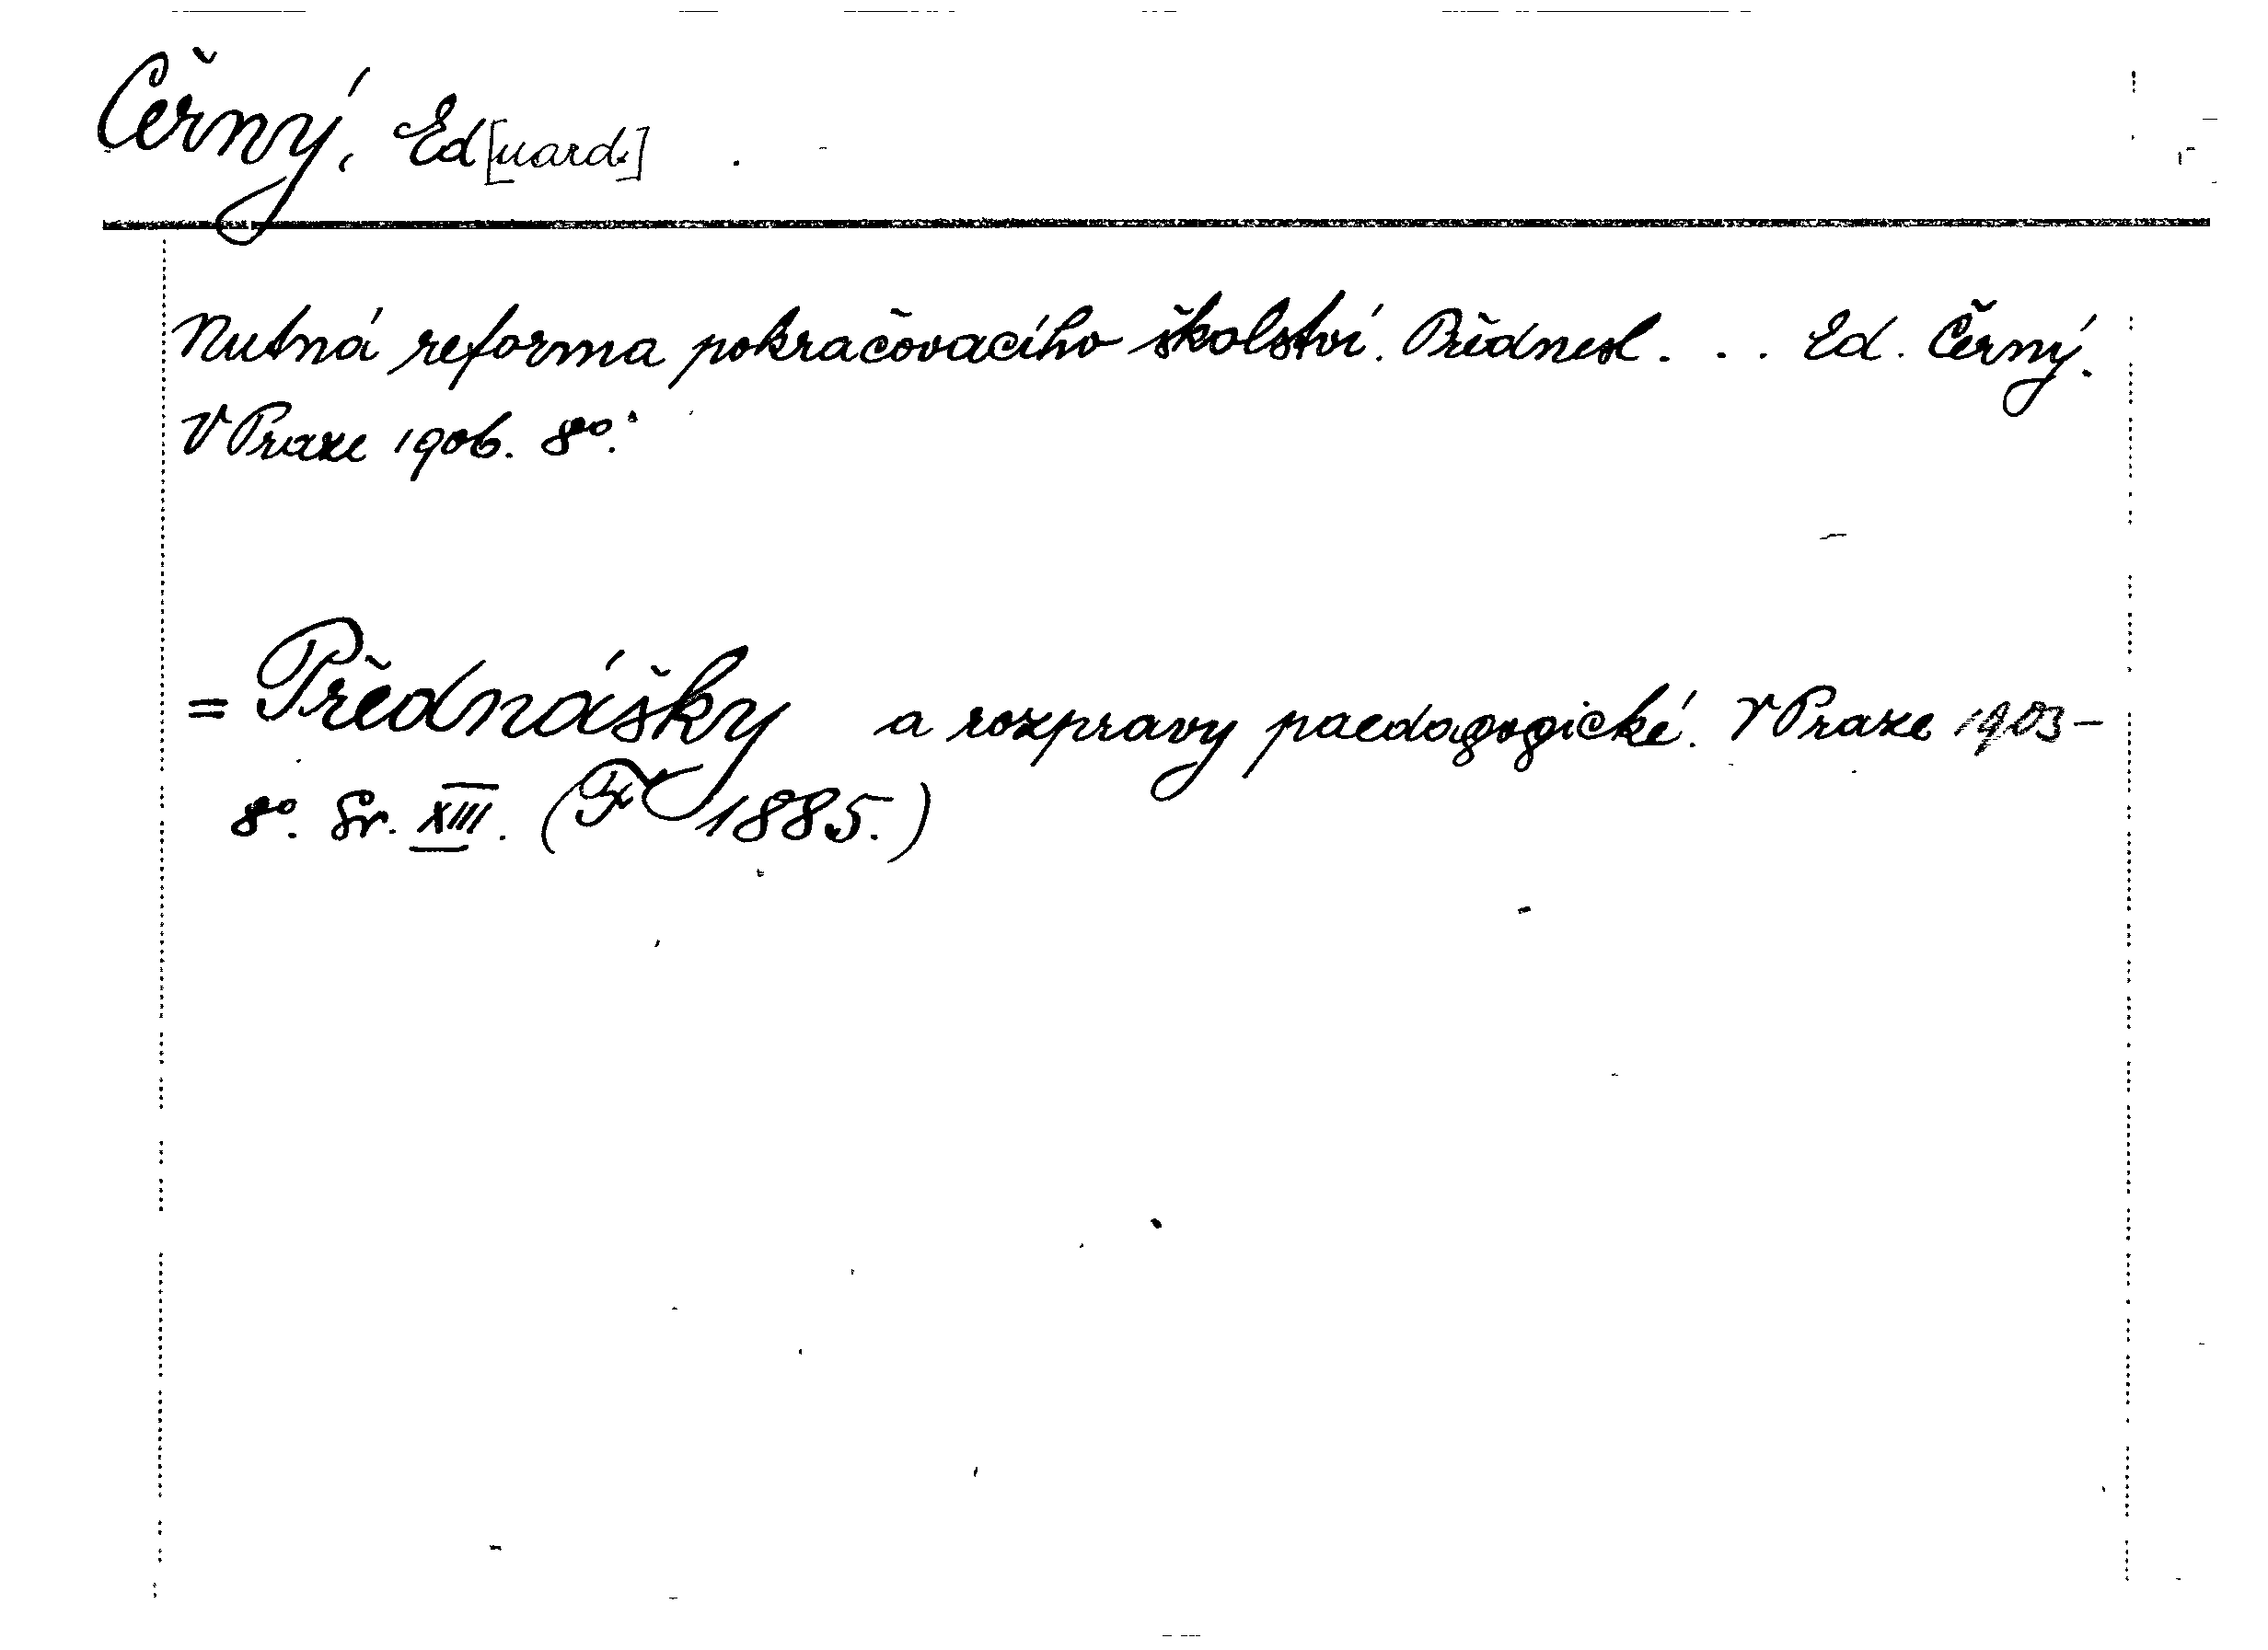 Černý, Ed[uard.]
Nutná reforma pokračovacího školství. Přednesl... Ed. Černý.
V Praze 1906. 8°.
= Přednášky a rozpravy paedagogické. V Praze 1903–
8°. Sv. XIII. ( 1885.)